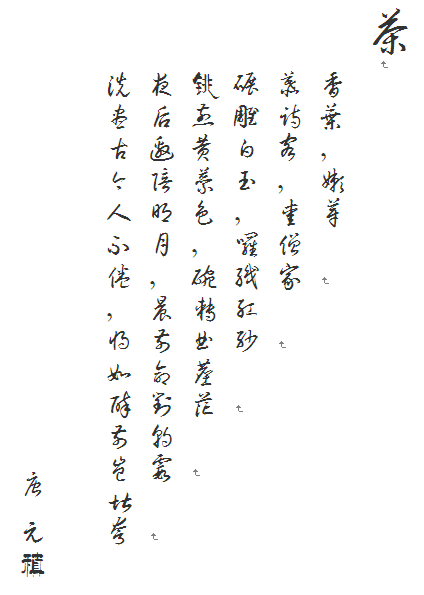 茶
香葉，嫩芽
慕詩客，愛僧家
碾雕白玉，囉織紅紗
銚煎黄蕊色，碗轉曲塵花
夜后邀陪明月，晨前命對朝霞
洗盡古今人不倦，將如醉前豈堪夸
唐 元稹